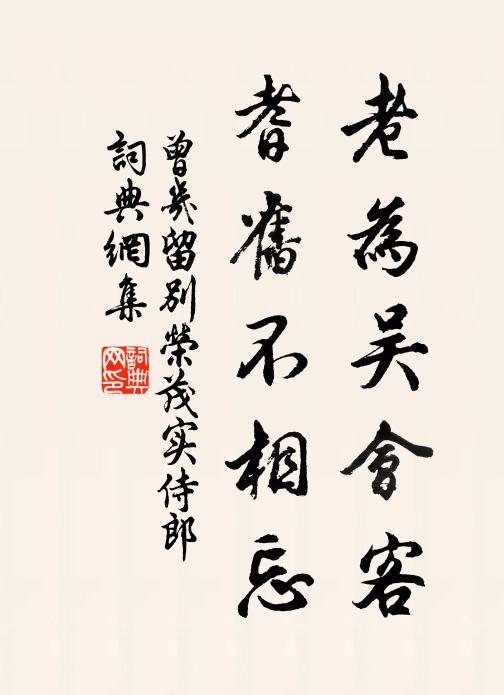 老為吴會客
耆舊不相忘
曾幾留别榮茂实侍郎
詞典網集
詞典網印